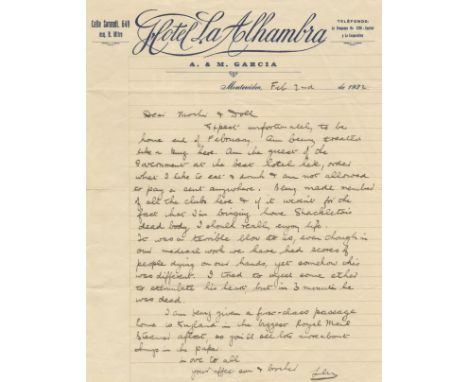 Calle Sarandí, 649
esq. B. Mitre
Hotel La Alhambra
TELÉFONOS:
La Uruguaya No. Central
y La Cooperativa
A. & M. GARCIA
Montevideo, Feb 2nd de 1922
Dear Mother & Doll
Expect unfortunately, to be
home end of February. Am being treated
like a King here. Am the guest of the
Government at the best hotel here, order
what I like to eat & drink & am not allowed
to pay a cent anywhere. Being made member
of all the clubs here & if it weren't for the
fact that I'm bringing home Shackleton's
dead body, I should really enjoy life.
It was a terrible blow to us, even though in
our medical work we have had scores of
people dying on our hands, yet somehow this
was different. I tried to inject some ether
to stimulate his heart but in 3 minutes he
was dead.
I am being given a first-class passage
home to England in the biggest Royal Mail
Steamer afloat, so you'll see lots more about
things in the paper.
Love to all
your affec son & brother